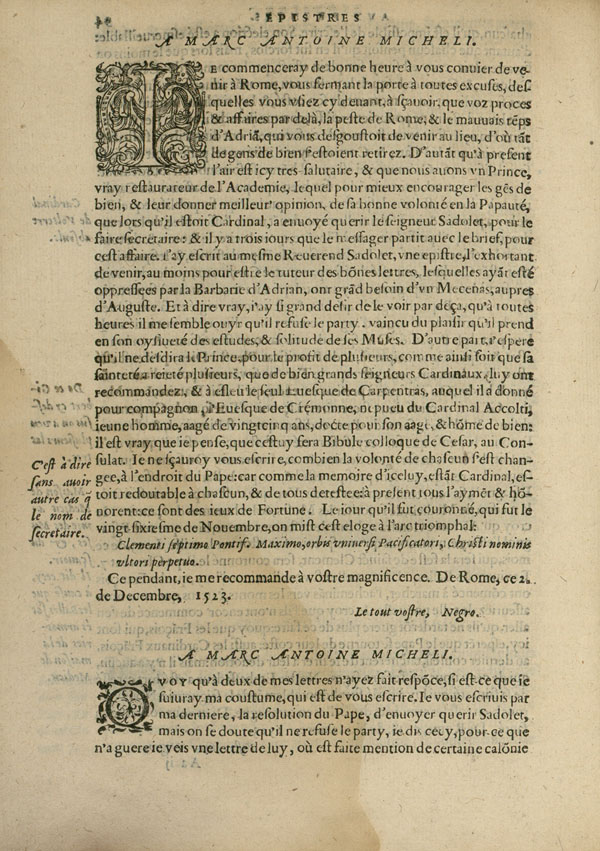 EPISTRES
A MARC ANTOINE MICHELI.
IE commenceray de bonne heure à vous conuier de ve-
nir à Rome, vous fermant la porte à toutes excuses, des
quelles vous vsiez cy deuant, à sçauoir, que voz proces
& affaires par delà, la peste de Rome, & le mauuais tẽps
d'Adriã, qui vous desgoustoit de venir au lieu, d'où tãt
de gens de bien s'estoient retirez. D'autãt qu'à present
l'air est icy tres salutaire, & que nous auons vn Prince,
vray restaurateur de l'Academie, lequel pour mieux encourager les gẽs de
bien, & leur donner meilleur' opinion, de sa bonne volonté en la Papauté,
que lors qu'il estoit Cardinal, a enuoyé querir le seigneur Sadolet, pour le
faire secretaire: & il y a trois iours que le messager partit auec le brief, pour
cest affaire. I'ay escrit au mesme Reuerend Sadolet, vne epistre, l'exhortant
de venir, au moins pour estre le tuteur des bõnes lettres, lesquelles ayãt esté
oppressées par la Barbarie d'Adrian, ont grãd besoin d'vn Mecenas, aupres
d'Auguste. Et à dire vray, i'ay si grand desir de le voir par deça, qu'à toutes
heures il me semble ouyr qu'il refuse le party, vaincu du plaisir qu'il prend
en son oysiueté des estudes, & solitude de ses Muses. D'autre part, i'espere
qu'il ne desdira le Prince, pour le profit de plusieurs, comme ainsi soit que sa
sainteté a reieté plusieurs, que de bien grands seigneurs Cardinaux, luy ont
recommandez, & à esleu le seul Euesque de Carpentras, auquel il a donné
pour compagnon, l'Euesque de Crémonne, nepueu du Cardinal Accolti,
ieune homme, aagé de vingt cinq ans, docte pour son aage, & hõme de bien:
il est vray que ie pense, que cestuy sera Bibule colloque de Cesar, au Con-
sulat. Ie ne sçauroy vous escrire, combien la volonté de chascun s'est chan-
gee, à l'endroit du Pape: car comme la memoire d'iceluy, estãt Cardinal, es-
toit redoutable à chascun, & de tous detestee: à present tous l'aymẽt & hõ-
norent: ce sont des ieux de Fortune. Le iour qu'il fut couronné, qui fut le
vingt-sixiesme de Nouembre, on mist cest eloge à l'arc triomphal:
C'est à dire
sans auoir
autre cas q̃
le nom de
secretaire.
Clementi septimo Pontif. Maximo, orbis vniuersi Pacificatori, Christi nominis
vltori perpetuo.
Ce pendant, ie me recommande à vostre magnificence. De Rome, ce 2.
de Decembre, 1523.
Le tout vostre, Negro.
A MARC ANTOINE MICHELI.
QVOY qu'à deux de mes lettres n'ayez fait respõce, si est-ce que ie
suiuray ma coustume, qui est de vous escrire. Ie vous escriuis par
ma derniere, la resolution du Pape, d'enuoyer querir Sadolet,
mais on se doute qu'il ne refuse le party, ie dis cecy, pour-ce que
n'a guere ie veis vne lettre de luy, où est faite mention de certaine calõnie